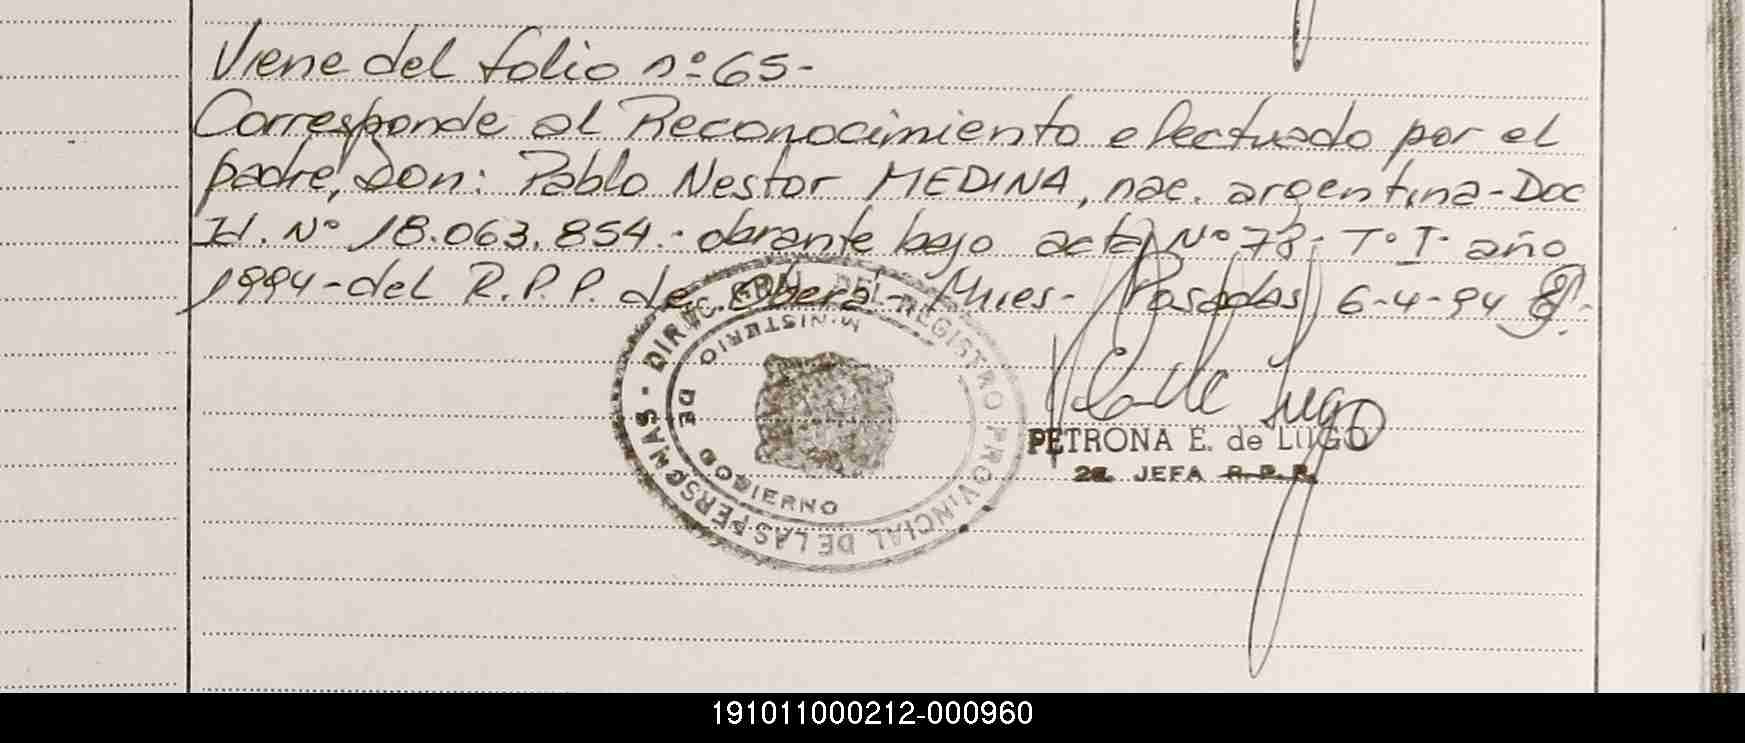 Viene del folio nº 65-
Corresponde al Reconocimiento efectuado por el
padre, Don: Pablo Nestor MEDINA, nac. argentina - Doc
Id. Nº 18.063.854.- obrante bajo acta Nº 78- Tº I- año
1994- del R.P.P. de Oberá- Mnes- Posadas 6-4-94
DIREC. GRAL. DEL REGISTRO PROVINCIAL DE LAS PERSONAS -
MINISTERIO DE GOBIERNO
PETRONA E. de LUGO
2a. JEFA R.P.P.
191011000212-000960